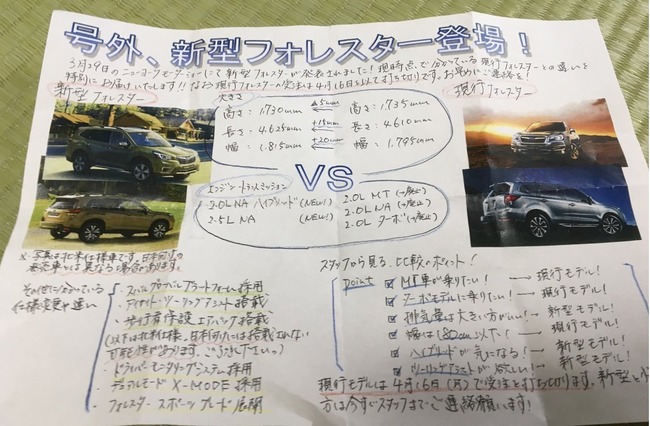 号外、新型フォレスター登場！
3月29日のニューヨークモーターショーにて新型フォレスターが発表されました！現時点で分かっている現行フォレスターとの違いを
特別にお届けいたします!!なお現行フォレスターの受注は4月16日を以て打ち切りです。お早めにご連絡を！
新型フォレスター
大きさ
現行フォレスター
高さ：1,730mm ▲5mm 高さ：1,735mm
長さ：4,625mm +15mm 長さ：4,610mm
幅：1,815mm +20mm 幅：1,795mm
VS
エンジン・トランスミッション
2.0L NA ハイブリッド (NEW!) 2.0L MT (→廃止)
2.5L NA (NEW!) 2.0L NA (→廃止)
2.0L ターボ (→廃止)
※写真は北米仕様車です。日本向けの
発売車とは異なる場合があります。
その他に分かっている
仕様変更や違い
・スバルグローバルプラットフォーム採用
・アイサイト・ツーリングアシスト搭載
・歩行者保護エアバッグ搭載
(以下は北米仕様、日本向けには搭載されない
可能性があります。ご了承下さいっ)
・ドライバーモニタリングシステム採用
・デュアルモード X-MODE 採用
・フォレスター スポーツグレード展開
スタッフから見る、比較のポイント！
point
☑ MT車が乗りたい！→現行モデル！
☑ ターボモデルに乗りたい！→現行モデル！
☑ 排気量は大きい方がいい！→新型モデル！
☑ 幅は180cm以下で！→現行モデル！
☑ ハイブリッドが気になる！→新型モデル！
☑ ツーリングアシストが欲しい！→新型モデル！
現行モデルは4月16日(月)で受注を打ち切ります。新型と
方は今すぐスタッフまでご連絡願います！